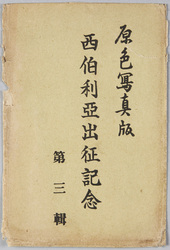 原色寫真版
西伯利亞出征記念
第三輯